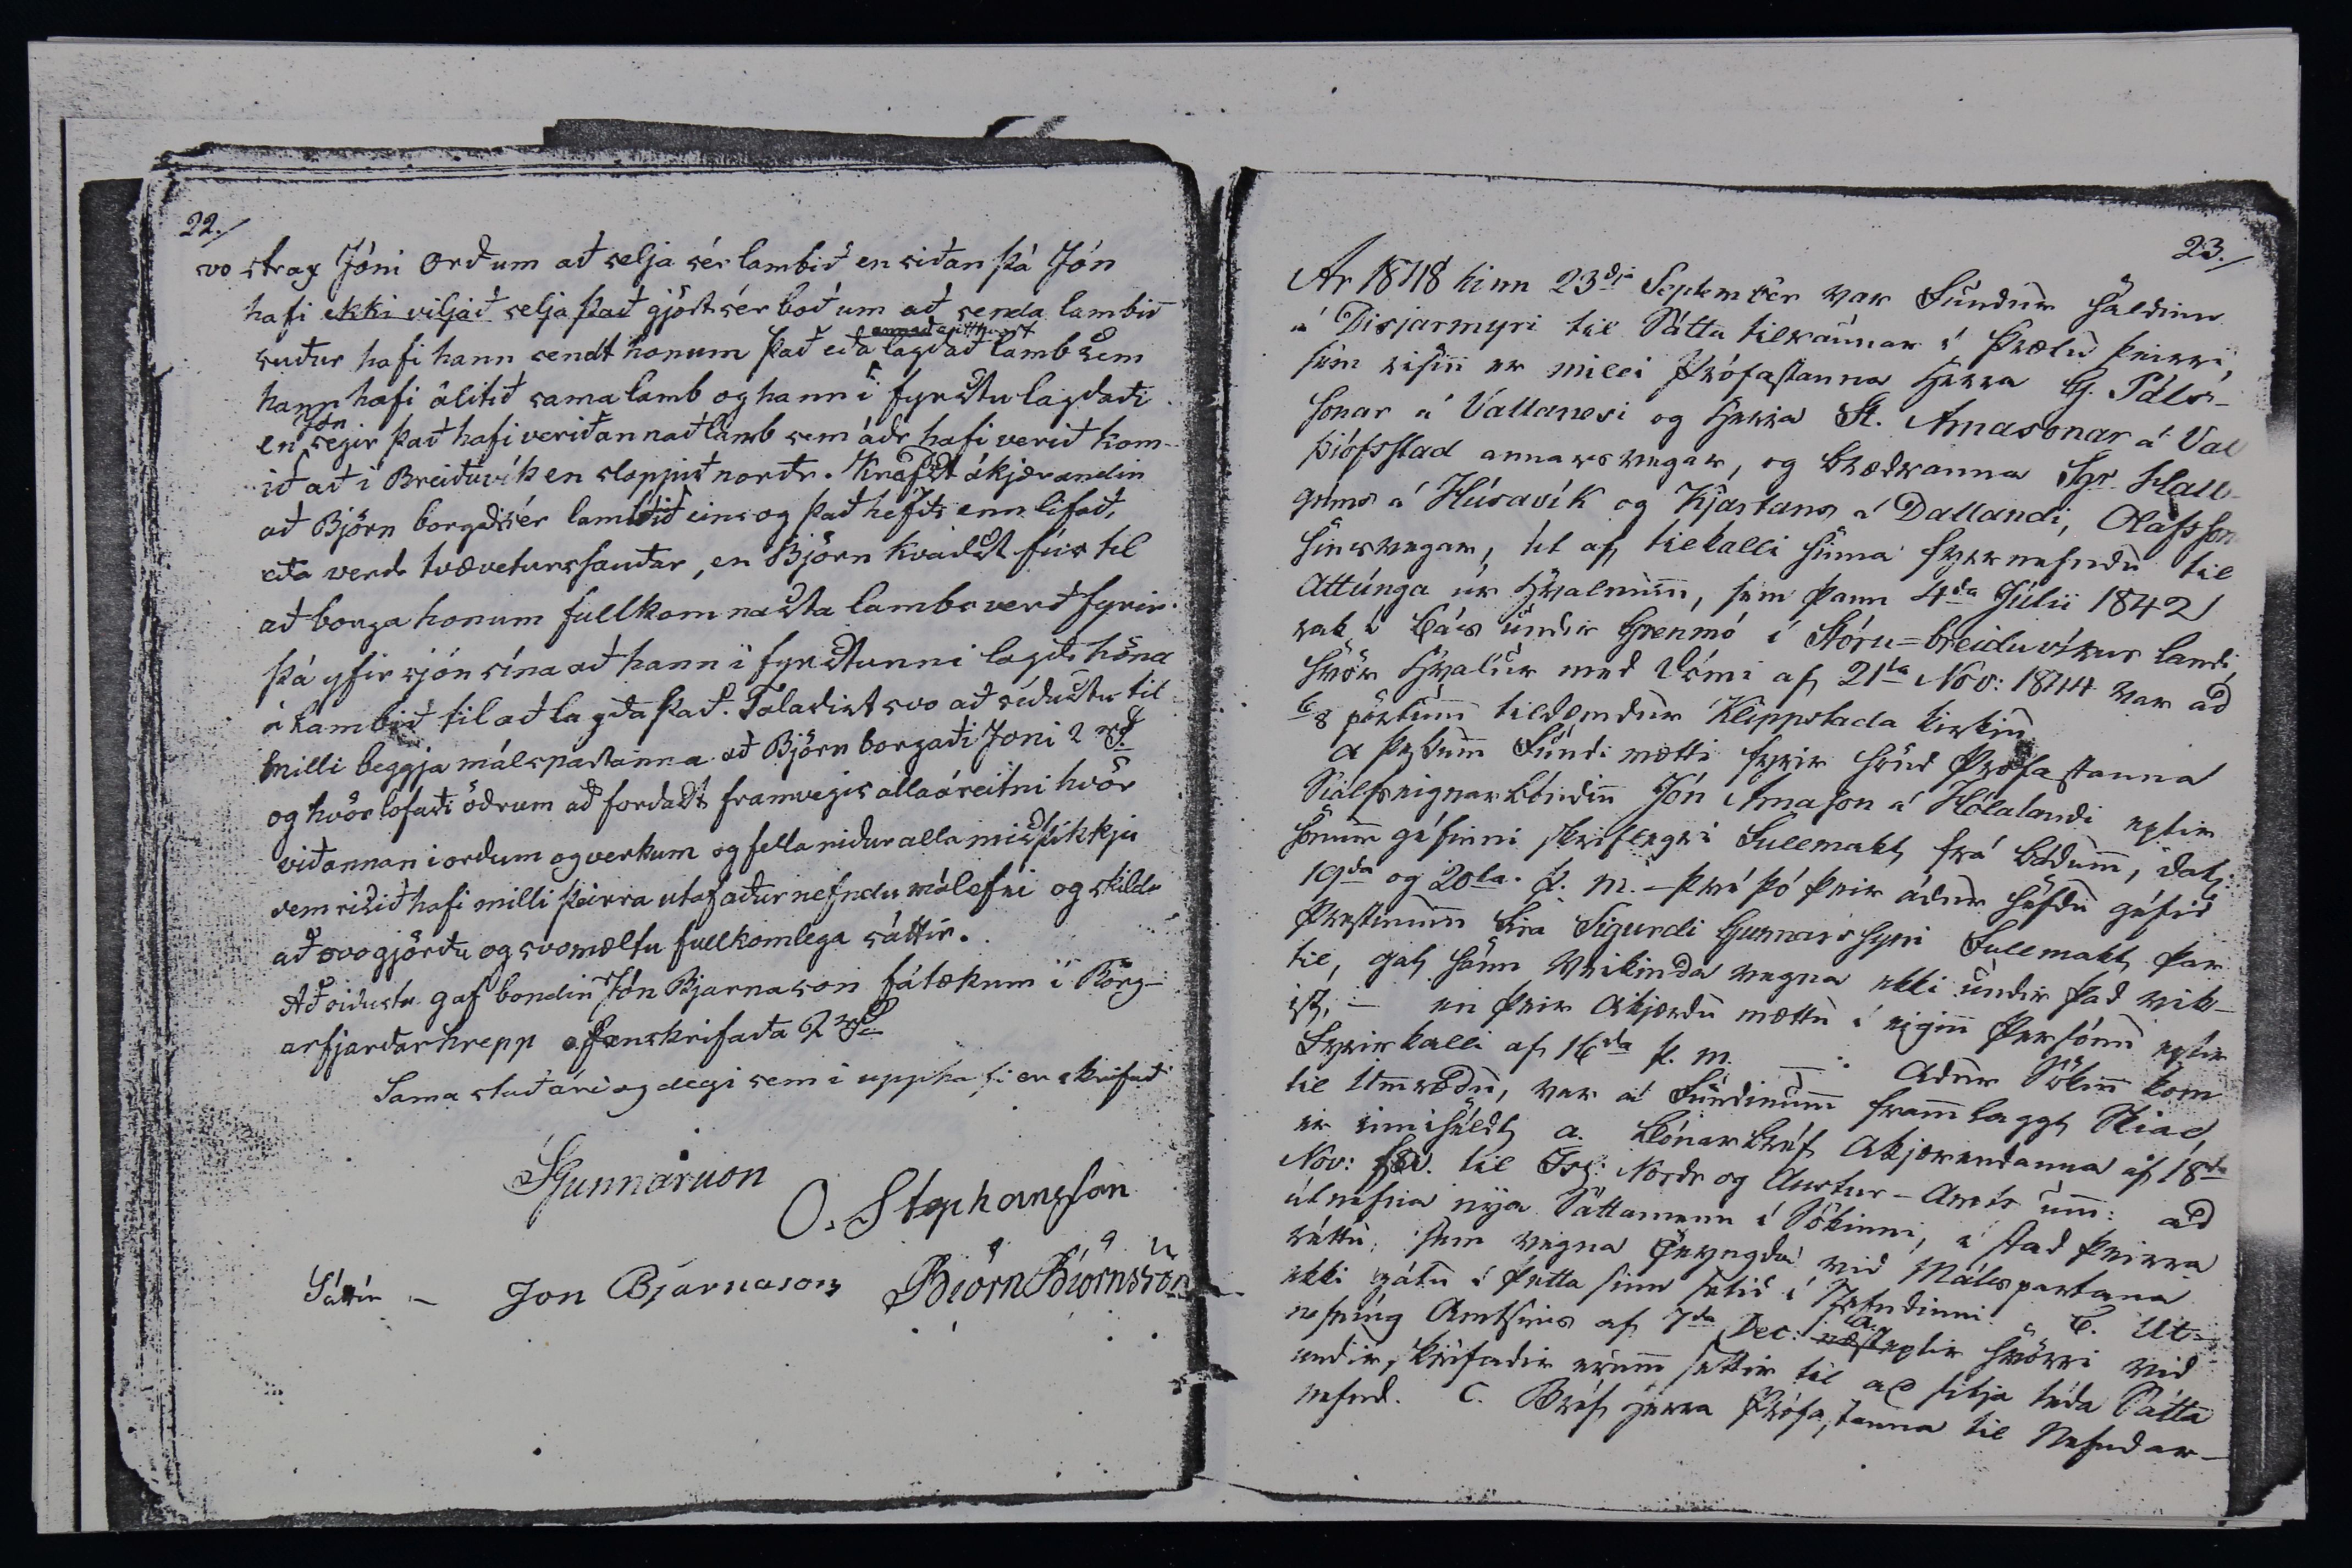 22./
svo strax Jóni Orðum að selja sér lambið en siðan þá Jón
hafi ekki viljað selja það gjört sér boð um að senda lambið
suður hafi hann sendt honum það eða annað lagðað lamb sem
hann hafi álitið sama lamb og hann i fyrstu lagðaði
en Jón segir það hafi verið annað lamb sem áðr hafi verið kom-
ið að i Breiðuvík en sloppið norðr. Krafðist ákjærandin
að Björn borgaði sér lambið eins og það hefði enn lifað,
eða verð tvæveturs sauðar, en Björn kvaðst fús til
að borga honum fullkomnasta lambs verð fyrir
þá yfirsjón sína að hann i fyrstunni lagði hönd
á lambið til að lagða það. Talaðist svo að siðustu til
milli beggja málspartanna að Björn borgaði Joni 2 rd
og hvör lofaði öðrum að forðast framvegis alla áreitni hvör
við annan i orðum og verkum og fella niður alla misþikkju
sem risið hafi milli þeirra utaf áður nefndu málefni og skildu
að svo gjörðu og svo mæltu fullkomlega sáttir.
Að siðustu gaf bondin Jón Bjarnason fátækum i Borg-
arfjarðarhrepp ofanskrifaða 2 rd
Sama stað ári og degi sem i upphafi er skrifað
SGunnarsson
O. Stephansson
Sáttir – Jon Bjarnason Biörn Biörnsson
23./
Ar 1848 hinn 23dji September var Fundur haldinn
á Disjarmyri til Sátta tilraunar i Þrætu þeirri,
sem risin er milli Prófastanna Herra G. Páls-
sonar á Vallanesi og Herra St. Arnasonar á Val
þiófsstad annarsvegar, og brædranna Sgr. Hall-
gríms á Húsavík og Kjartans á Dallandi, Olafsson
hinsvegar, út af tilkalli hinna fyrrnefndu til
Attúnga úr Hvalnum, sem þann 4da Júlii 1842
rak á Bás undir Grenmó i Stóru=breiduvíkur landi,
hvör Hvalur med Dómi af 21ta Nov: 1844 var ad
6/8 pörtum tildæmdur Klippstada kirkju
A þessum Fundi mætti fyrir hönd Prófastanna
Sialfseignarbóndinn Jón Arnason á Hólalandi eptir
honum géfinni skriflegri Fullmakt frá bádum, dat:
19da og 20ta þ. m. – því þó þeir ádur höfdu géfid
Prestinum Sira Sigurdi Gunnarssyni Fullmakt þar
til, gat hann Veikinda vegna ekki undir þad vik-
ist, – en þeir Akjærdu mættu i eiginn Persónu eptir
Fyrirkalli af 16da þ. m. – : Adur Sökin kom
til Umrædu, var á Fundinum framm laggt Skial,
er inniheldt a. Bónarbréf Akjærendanna af 18da
Nov: f. á. til Isl: Nordr og Austur – Amts um: ad
útnefna nýa Sáttamenn i Sökinni, i stad þeirra
réttu, sem vegna Tengda vid Málspartana
ekki gátu i þetta sinn setid i Nefndinni. b. Ut-
nefning Amtsins af 7da Dec: s. á. eptir hvörri vid
undirskrifadir erum settir til ad sitja téda Sátta
nefnd. C. Bréf Herra Prófastanna til Nefndar-